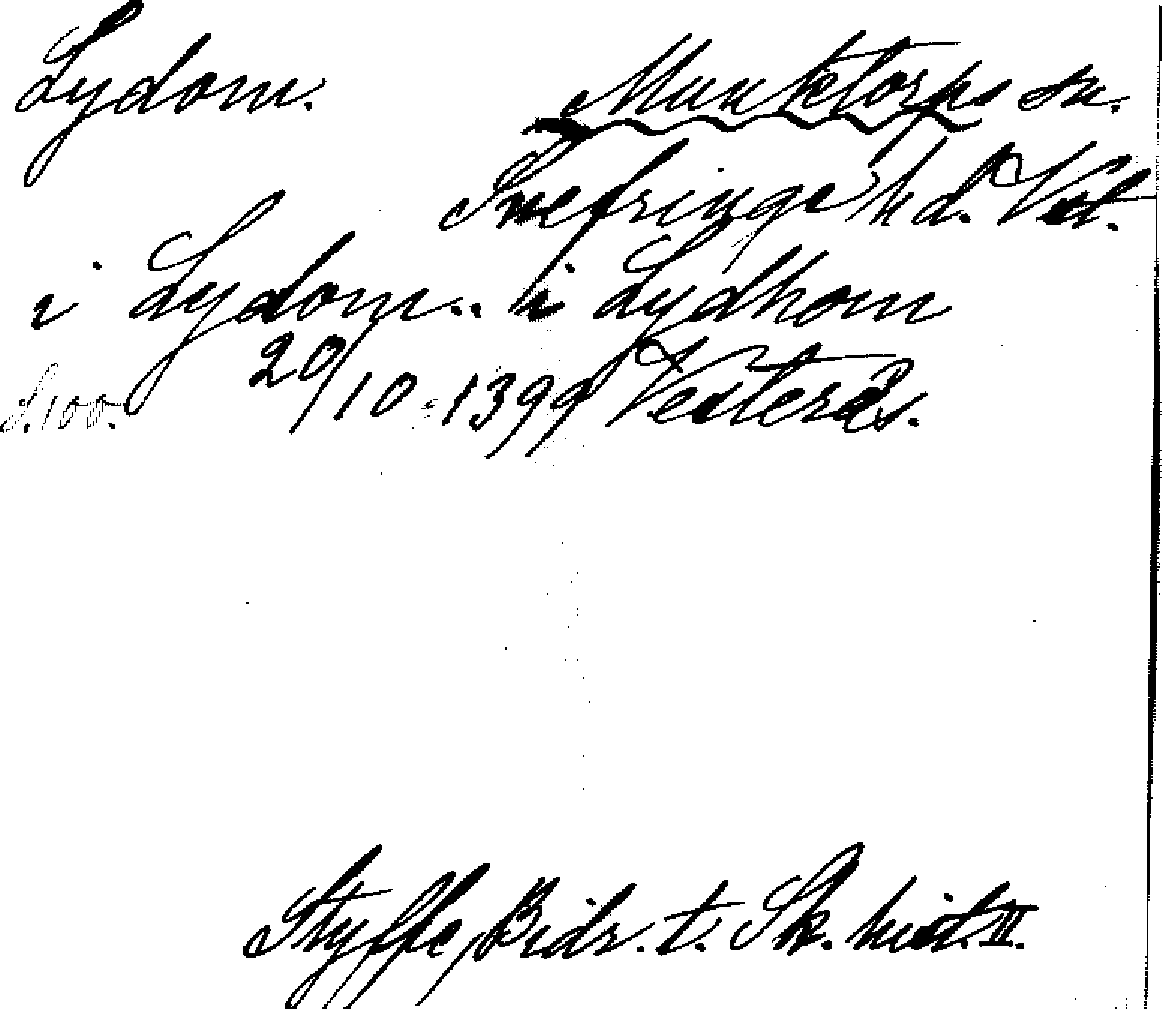 Lydom. Munktorps sn.
Snefringe hd. Vstl.
i Lydom.. i Lydhom
20/10 1399 Vesterås.
S. 100.
Styffe, Bidr. t. Sk. hist. II.